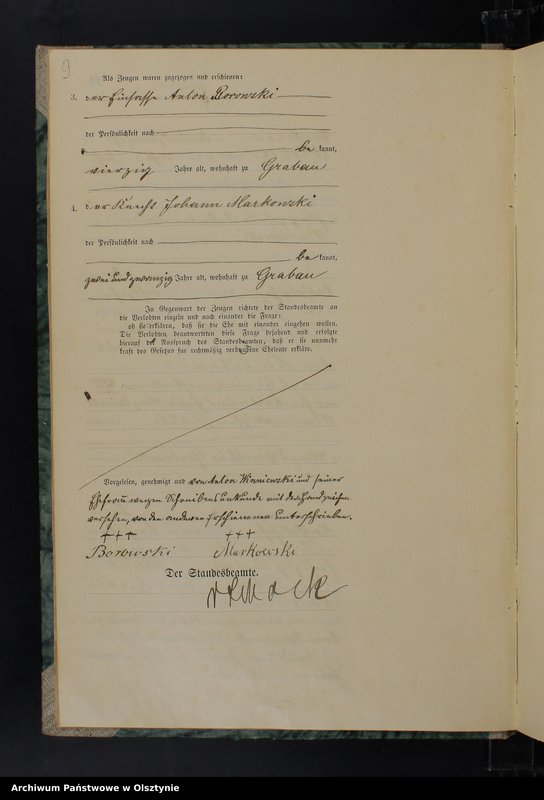 9
Als Zeugen waren zugezogen und erschienen:
3. der Einsasse Anton Borowski
der Persönlichkeit nach
be kannt,
vierzig Jahre alt, wohnhaft zu Grabau
4. der Knecht Johann Markowski
der Persönlichkeit nach
be kannt,
zweiundzwanzig Jahre alt, wohnhaft zu Grabau
In Gegenwart der Zeugen richtete der Standesbeamte an
die Verlobten einzeln und nach einander die Frage:
ob sie erklären, daß sie die Ehe mit einander eingehen wollen.
Die Verlobten beantworteten diese Frage bejahend und erfolgte
hierauf der Ausspruch des Standesbeamten, daß er sie nunmehr
kraft des Gesetzes für rechtmäßig verbundene Eheleute erkläre.
Vorgelesen, genehmigt und von Anton Winniewski und seiner
Ehefrau wegen Schreibensunkunde mit den Handzeichen
versehen, von den anderen Erschienenen unterschrieben.
+++ +++
Borowski Markowski
Der Standesbeamte.
Archiwum Państwowe w Olsztynie